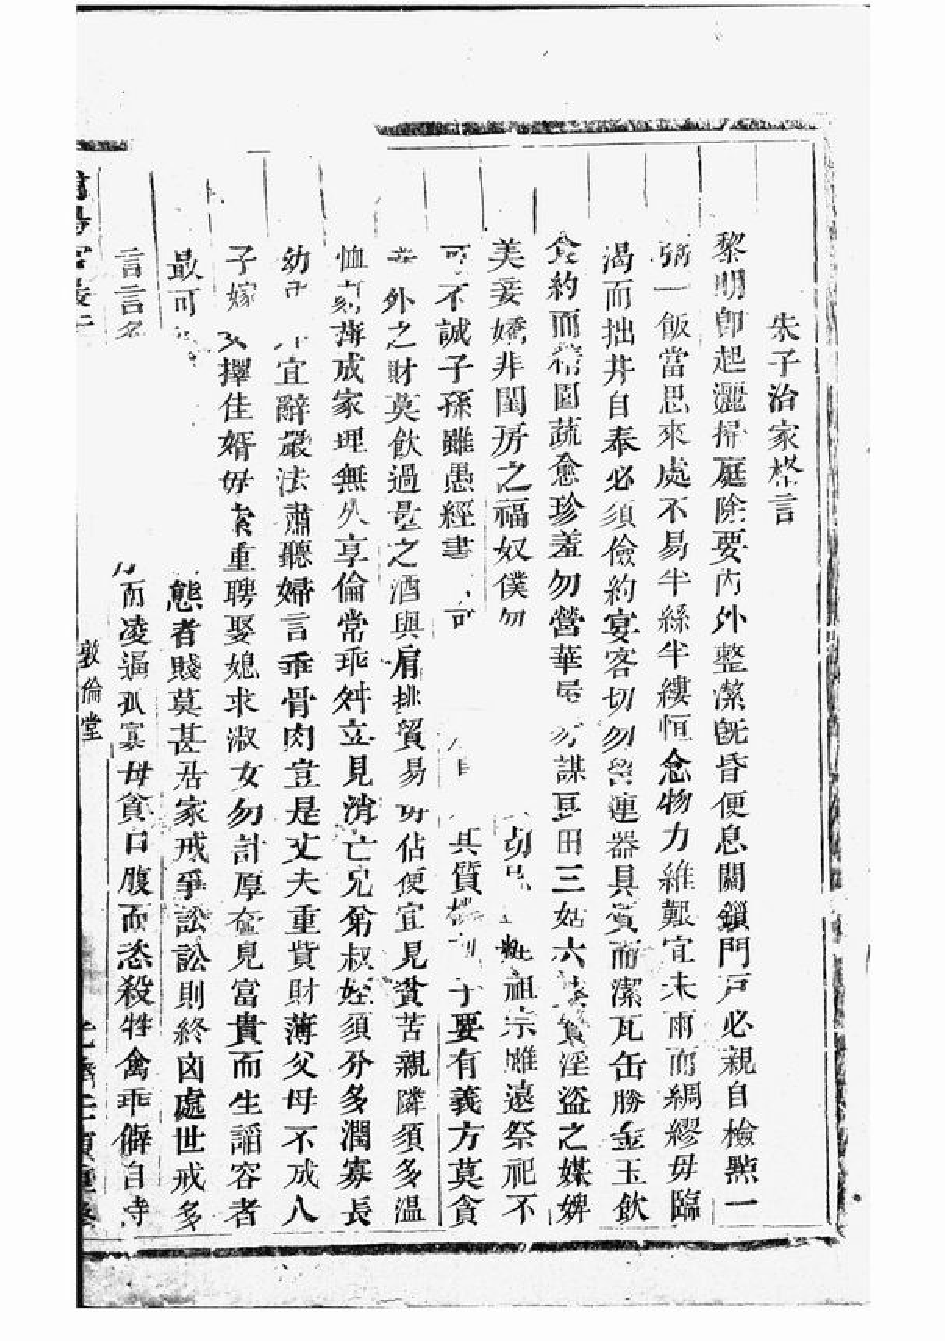 朱子治家格言
黎明即起灑掃庭除要內外整潔旣昏便息關鎖門戸必親自檢㸃一
粥一飯當思來處不易半絲半縷恒念物力維艱宜未雨而綢繆毋臨
渴而拙井自奉必須儉約宴客切勿留連器具質而潔瓦缶勝金玉飲
食約而精園蔬愈珍羞勿營華居勿謀田三姑六婆實淫盜之媒婢
美妾嬌非閨房之福奴僕勿粧祖宗雖遠祭祀不
可不誠子孫雖愚經書其質樸子要有義方莫貪
外之財莫飲過量之酒與肩挑貿易毋佔便宜見貧苦親隣須多温
恤刻薄成家理無久享倫常乖舛立見消亡兄弟叔姪須分多潤寡長
幼宜辭嚴法肅聽婦言乖骨肉豈是丈夫重貲財薄父母不成人
子嫁女擇佳婿毋索重聘娶媳求淑女勿計厚奩見富貴而生謟容者
最可態者賤莫甚居家戒爭訟訟則終凶處世戒多
言言而凌逼孤寡毋貪口腹而恣殺牲禽乖僻自
敦倫堂